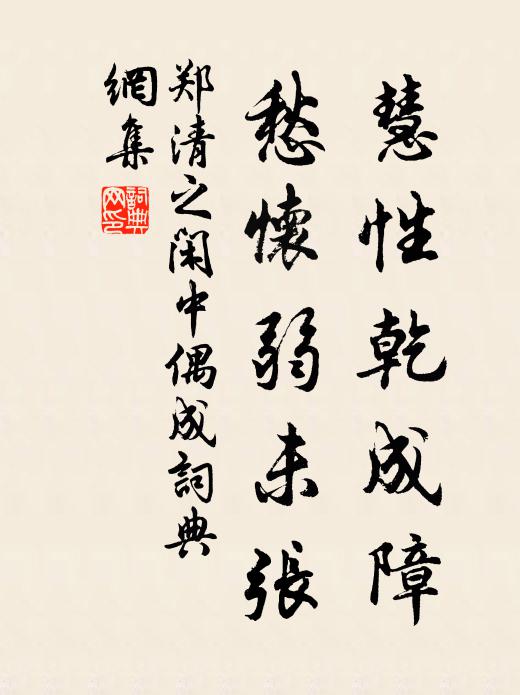 慧性乾成障
愁懷弱未張
郑清之閑中偶成詞典
網集
詞典网印